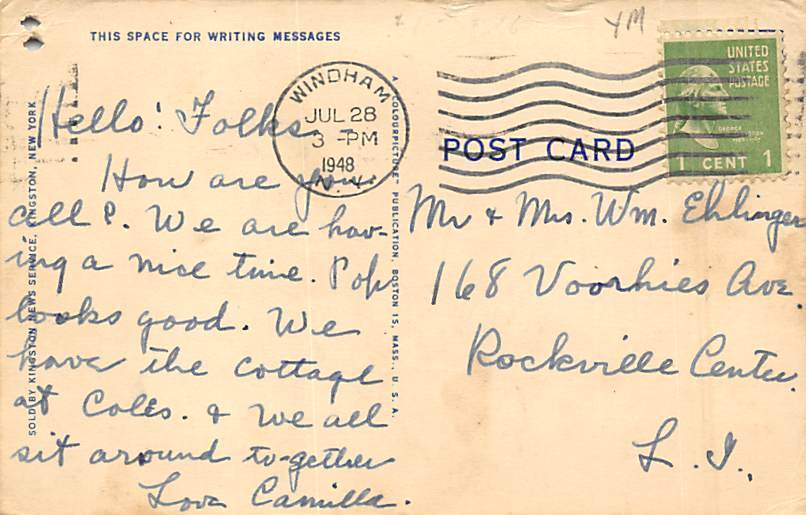 THIS SPACE FOR WRITING MESSAGES
Hello! Folks -
How are you
all?. We are hav-
ing a nice time. Pop
looks good. We
have the cottage
at Coles. & we all
sit around to-gether
Love Camilla.
SOLD BY KINGSTON NEWS SERVICE, KINGSTON, NEW YORK
A "COLOURPICTURE" PUBLICATION, BOSTON 15, MASS., U.S.A.
WINDHAM
JUL 28
3 -PM
1948
N.Y.
POST CARD
UNITED
STATES
POSTAGE
GEORGE
1 CENT 1
Mr & Mrs. Wm. Ehlinger
168 Voorhies Ave.
Rockville Center.
L. I.,